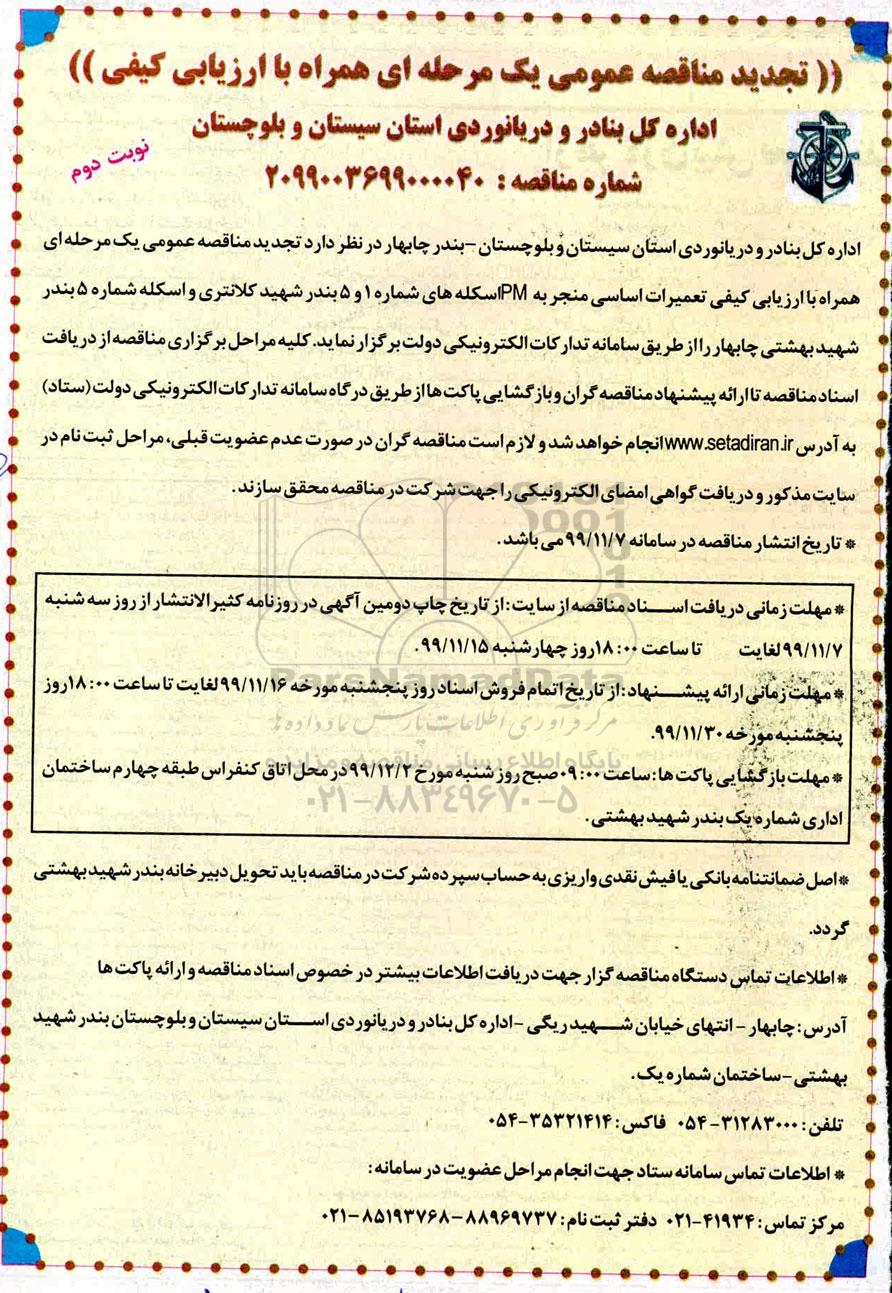 (( تجدید مناقصه عمومی یک مرحله ای همراه با ارزیابی کیفی ))
اداره کل بنادر و دریانوردی استان سیستان و بلوچستان
نوبت دوم
شماره مناقصه : ۲۰۹۹۰۰۳۶۹۹۰۰۰۰۴۰
اداره کل بنادر و دریانوردی استان سیستان و بلوچستان –بندر چابهار در نظر دارد تجدید مناقصه عمومی یک مرحله ای
همراه با ارزیابی کیفی تعمیرات اساسی منجر به PM اسکله های شماره ۱ و ۵ بندر شهید کلانتری و اسکله شماره ۵ بندر
شهید بهشتی چابهار را از طریق سامانه تدارکات الکترونیکی دولت برگزار نماید. کلیه مراحل برگزاری مناقصه از دریافت
اسناد مناقصه تا ارائه پیشنهاد مناقصه گران و بازگشایی پاکت ها از طریق درگاه سامانه تدارکات الکترونیکی دولت (ستاد)
به آدرس www.setadiran.ir انجام خواهد شد و لازم است مناقصه گران در صورت عدم عضویت قبلی، مراحل ثبت نام در
سایت مذکور و دریافت گواهی امضای الکترونیکی را جهت شرکت در مناقصه محقق سازند.
* تاریخ انتشار مناقصه در سامانه ۹۹/۱۱/۷ می باشد.
* مهلت زمانی دریافت اسناد مناقصه از سایت: از تاریخ چاپ دومین آگهی در روزنامه کثیرالانتشار از روز سه شنبه
۹۹/۱۱/۷ لغایت تا ساعت ۱۸:۰۰ روز چهارشنبه ۹۹/۱۱/۱۵.
* مهلت زمانی ارائه پیشنهاد: از تاریخ اتمام فروش اسناد روز پنجشنبه مورخه ۹۹/۱۱/۱۶ لغایت تا ساعت ۱۸:۰۰ روز
پنجشنبه مورخه ۹۹/۱۱/۳۰.
* مهلت بازگشایی پاکت ها: ساعت ۰۹:۰۰ صبح روز شنبه مورخ ۹۹/۱۲/۲ در محل اتاق کنفراس طبقه چهارم ساختمان
اداری شماره یک بندر شهید بهشتی.
* اصل ضمانتنامه بانکی یا فیش نقدی واریزی به حساب سپرده شرکت در مناقصه باید تحویل دبیرخانه بندر شهید بهشتی
گردد.
* اطلاعات تماس دستگاه مناقصه گزار جهت دریافت اطلاعات بیشتر در خصوص اسناد مناقصه و ارائه پاکت ها
آدرس: چابهار – انتهای خیابان شهید ریگی –اداره کل بنادر و دریانوردی استان سیستان و بلوچستان بندر شهید
بهشتی –ساختمان شماره یک.
تلفن: ۳۱۲۸۳۰۰۰-۰۵۴ فاکس: ۳۵۳۲۱۴۱۴-۰۵۴
* اطلاعات تماس سامانه ستاد جهت انجام مراحل عضویت در سامانه:
مرکز تماس: ۴۱۹۳۴-۰۲۱ دفتر ثبت نام: ۸۸۹۶۹۷۳۷–۸۵۱۹۳۷۶۸-۰۲۱
ParsNamadData
مرکز فرآوری اطلاعات پارس نماد داده ها
پایگاه اطلاع رسانی مناقصه و مزایده
۰۲۱-۸۸۳۴۹۶۷۰-۵